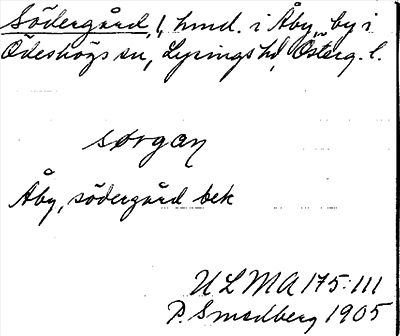 Södergård, l, hmd. i Åby, by i
Ödeshögs sn, Lysings hd, Österg. l.
sørgaɳ
Åby, södergård bek
ULMA 175:111
P. Smedberg 1905